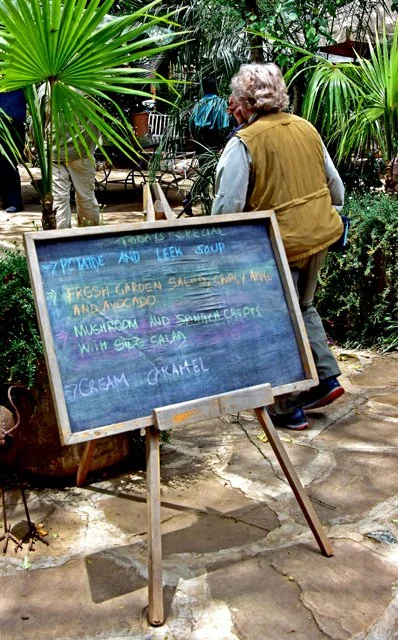 TODAY'S SPECIAL
POTATOE AND LEEK SOUP
FRESH GARDEN SALAD,
AND AVOCADO
MUSHROOM AND SPINACH CREPES
WITH SIDE SALAD
CREAM CARAMEL